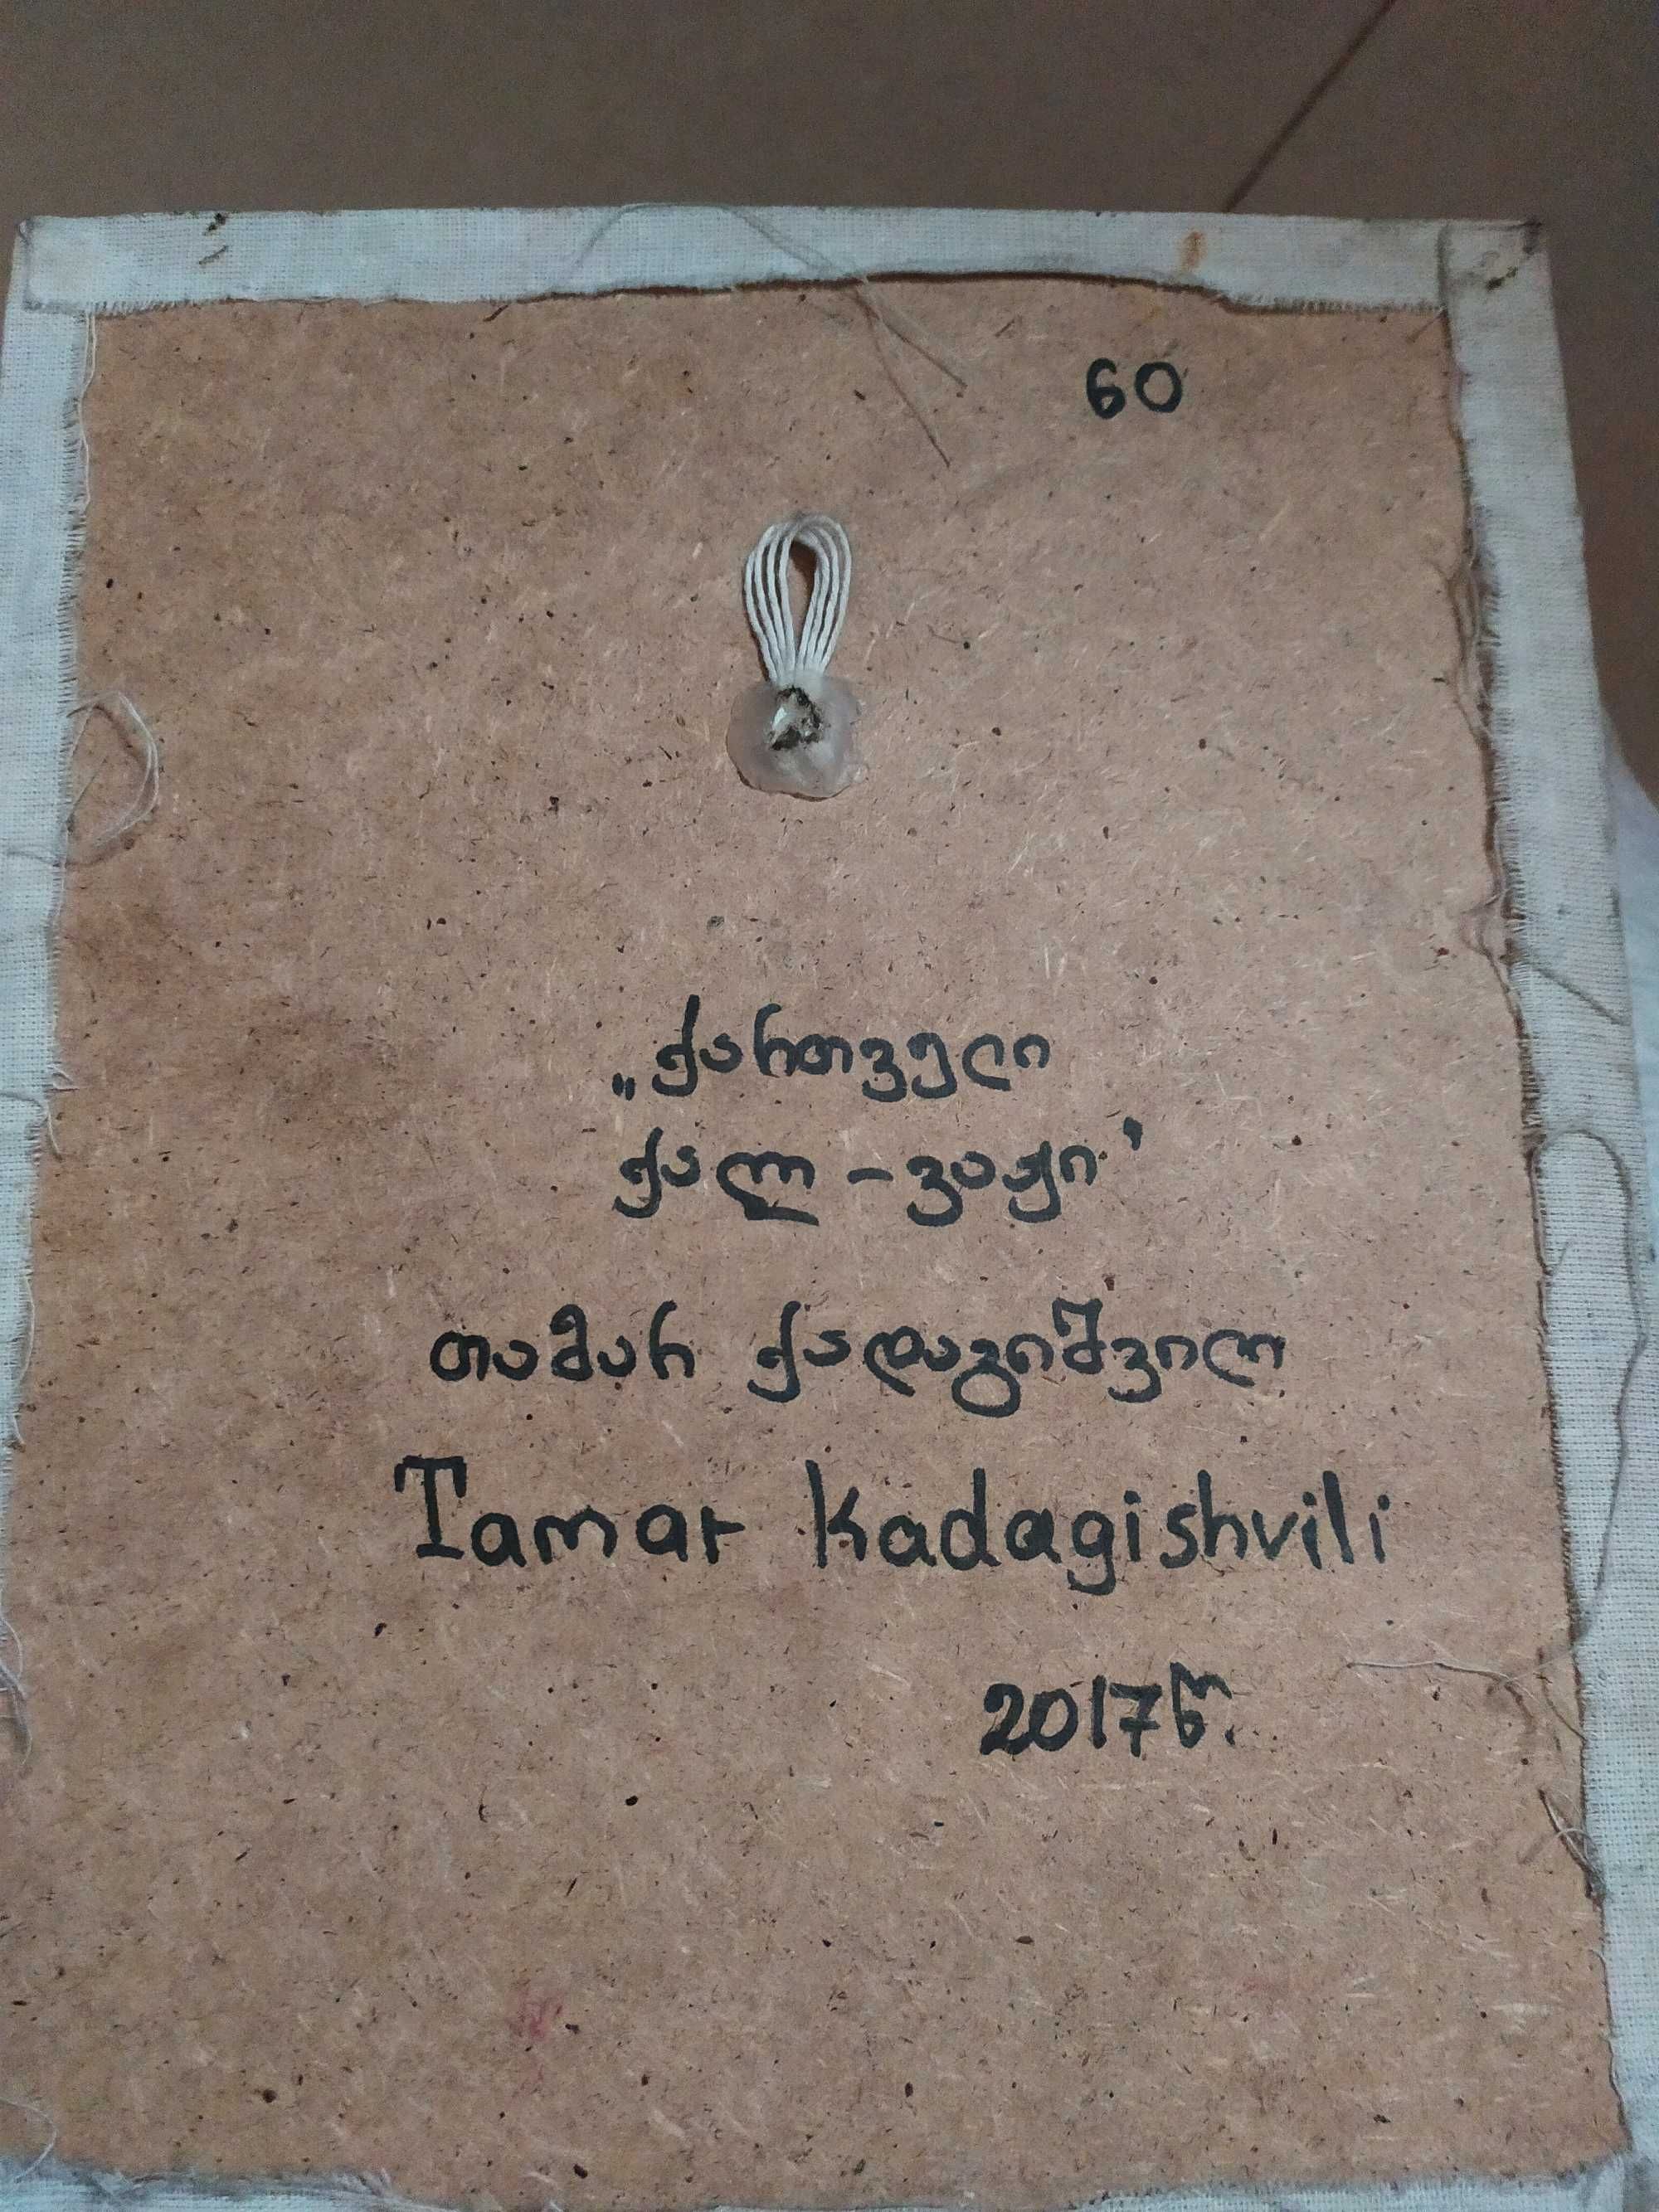 60
„ქართველი
ქალ - ვაჟი"
თამარ ქადაგიშვილი
Tamar Kadagishvili
2017წ.